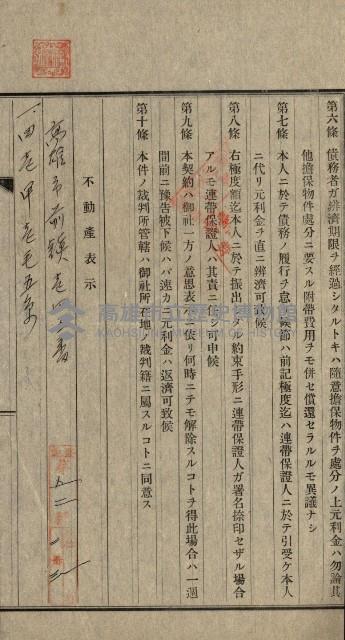 第六條　債務者ガ辨濟期限ヲ經過シタルトキハ隨意擔保物件ヲ處分ノ上元利金ハ勿論其
他擔保物件處分ニ要スル附帶費用ヲモ併セ償還セラルルモ異議ナシ
第七條　本人ニ於テ債務ノ履行ヲ怠リ候節ハ前記極度迄ハ連帶保證人ニ於テ引受ケ本人
ニ代リ元利金ヲ直ニ辨濟可致候
第八條　右極度額迄本人ニ於テ振出シタル約束手形ニ連帶保證人ガ署名捺印セザル場合
アルモ連帶保證人ハ其責ニ任ジ可申候
第九條　本契約ハ御社一方ノ意思表示ニ依リ何時ニテモ解除スルコトヲ得此場合ハ一週
間前ニ豫告被下候ハバ速カニ元利金ハ返濟可致候
第十條　本件ノ裁判所管轄ハ御社所在地ノ裁判籍ニ屬スルコトニ同意ス
不動產表示
高雄市前鎮
高雄市立歷史博物館